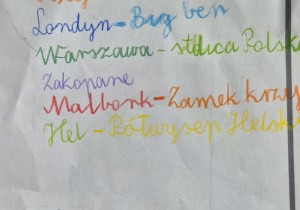 Londyn - Big ben
Warszawa - stolica Polsk
Zakopane
Malbork - Zamek krzy
Hel - Półwysep Helsk